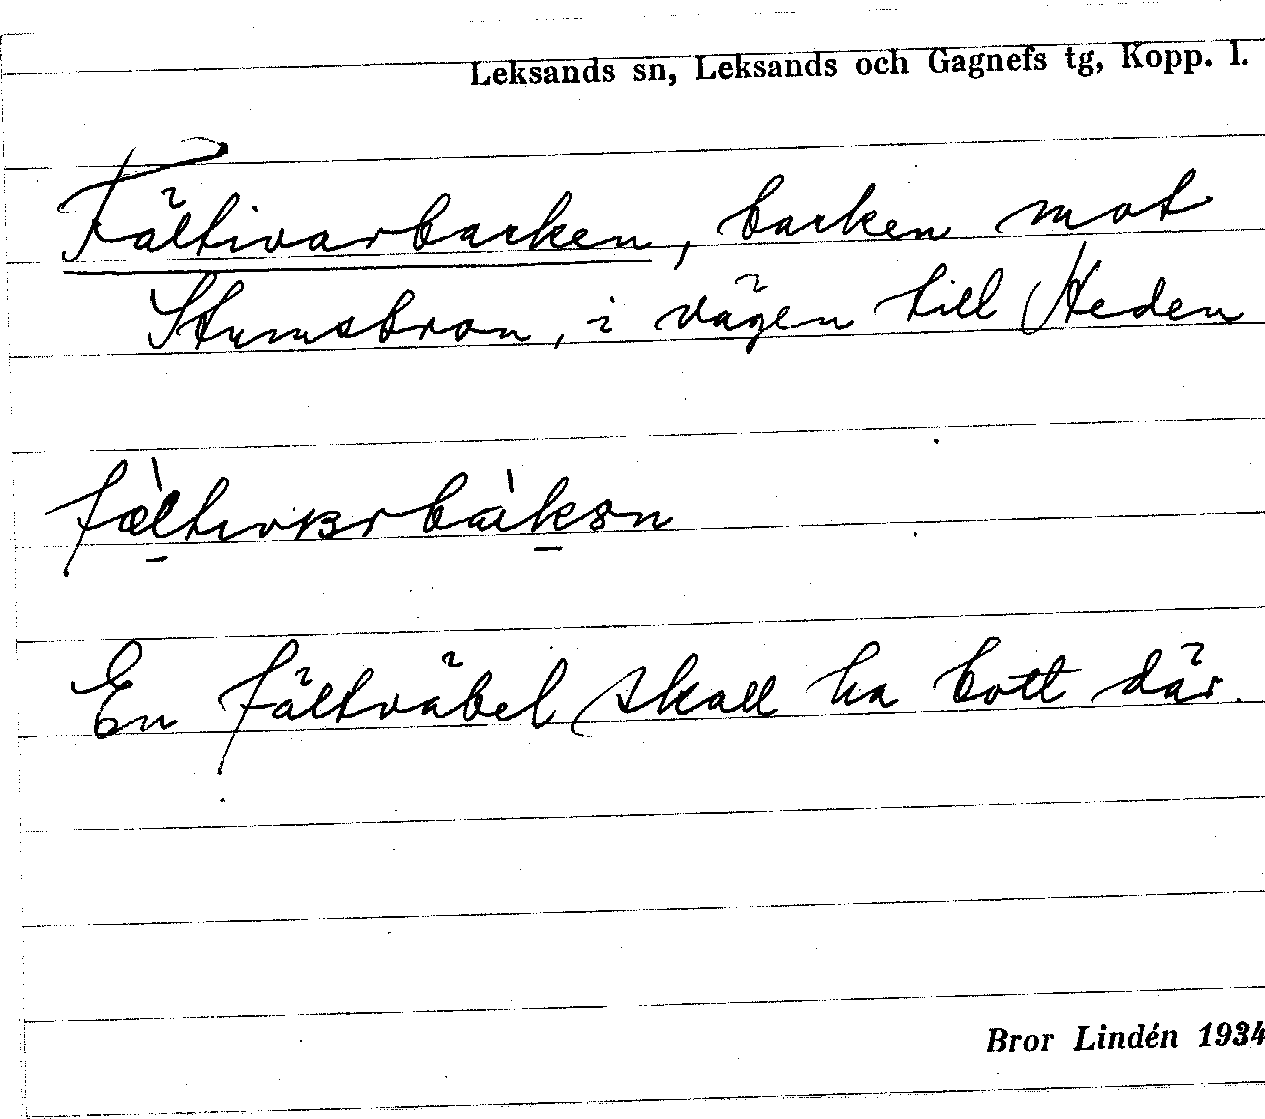 Leksands sn, Leksands och Gagnefs tg, Kopp. l.
Fältivarbacken, backen mot
Stumsbron, i vägen till Heden
En fältväbel skall ha bott där.
Bror Lindén 1934